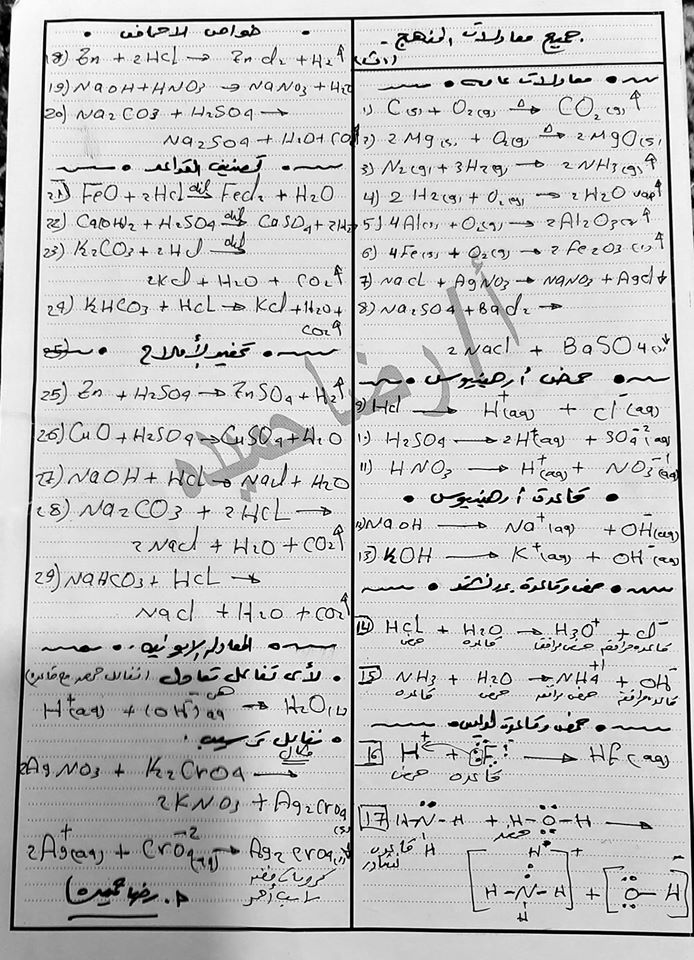 جميع معادلات المنهج
(١ث)
معادلات عامه
1) C(s) + O2(g) —Δ→ CO2(g)↑
2) 2Mg(s) + O2(g) —Δ→ 2MgO(s)
3) N2(g) + 3H2(g) → 2NH3(g)↑
4) 2H2(g) + O2(g) → 2H2O vap↑
5) 4Al(s) + O2(g) → 2Al2O3
6) 4Fe(s) + O2(g) → 2Fe2O3
7) NaCl + AgNO3 → NaNO3 + AgCl↓
8) Na2SO4 + BaCl2 →
2NaCl + BaSO4(s)↓
حمض أرهينيوس
9) HCl → H+(aq) + Cl-(aq)
10) H2SO4 → 2H+(aq) + SO4-2(aq)
11) HNO3 → H+(aq) + NO3-1(aq)
قاعدة أرهينيوس
12) NaOH → Na+(aq) + OH-(aq)
13) KOH → K+(aq) + OH-(aq)
حمض وقاعدة برنشتد
14) HCl + H2O → H3O+ + Cl-
حمض قاعده حمض مرافق قاعده مرافقه
15) NH3 + H2O → NH4+1 + OH-
قاعده حمض حمض مرافق قاعده مرافقه
حمض وقاعدة لويس
16) H+ + F- → HF(aq)
حمض قاعده
17) H-N-H + H-O-H →
H
حمض
قاعده
[H-N-H]+ + [O-H]-
H
H
خواص الاحماض
18) Zn + 2HCl → ZnCl2 + H2↑
19) NaOH + HNO3 → NaNO3 + H2O
20) Na2CO3 + H2SO4 →
Na2SO4 + H2O + CO2↑
تصنيف القواعد
21) FeO + 2HCl —dil→ FeCl2 + H2O
22) Ca(OH)2 + H2SO4 —dil→ CaSO4 + 2H2
23) K2CO3 + 2HCl —dil→
2KCl + H2O + CO2↑
24) KHCO3 + HCl → KCl + H2O +
CO2↑
تحضير الأملاح
25) Zn + H2SO4 → ZnSO4 + H2↑
26) CuO + H2SO4 → CuSO4 + H2O
27) NaOH + HCl → NaCl + H2O
28) Na2CO3 + 2HCL →
2NaCl + H2O + CO2↑
29) NaHCO3 + HCL →
NaCl + H2O + CO2↑
المعادله الايونيه
لأى تفاعل تعادل (تفاعل حمض مع قاعده)
هى
H+(aq) + (OH-)aq → H2O(L)
تفاعل ترسيب
مثال
2AgNO3 + K2CrO4 →
2KNO3 + Ag2CrO4(s)
2Ag+(aq) + CrO4-2(aq) → Ag2CrO4(s)↓
كرومات فضه
راسب أحمر
أ. رضا حميده
أ/رضا حميده